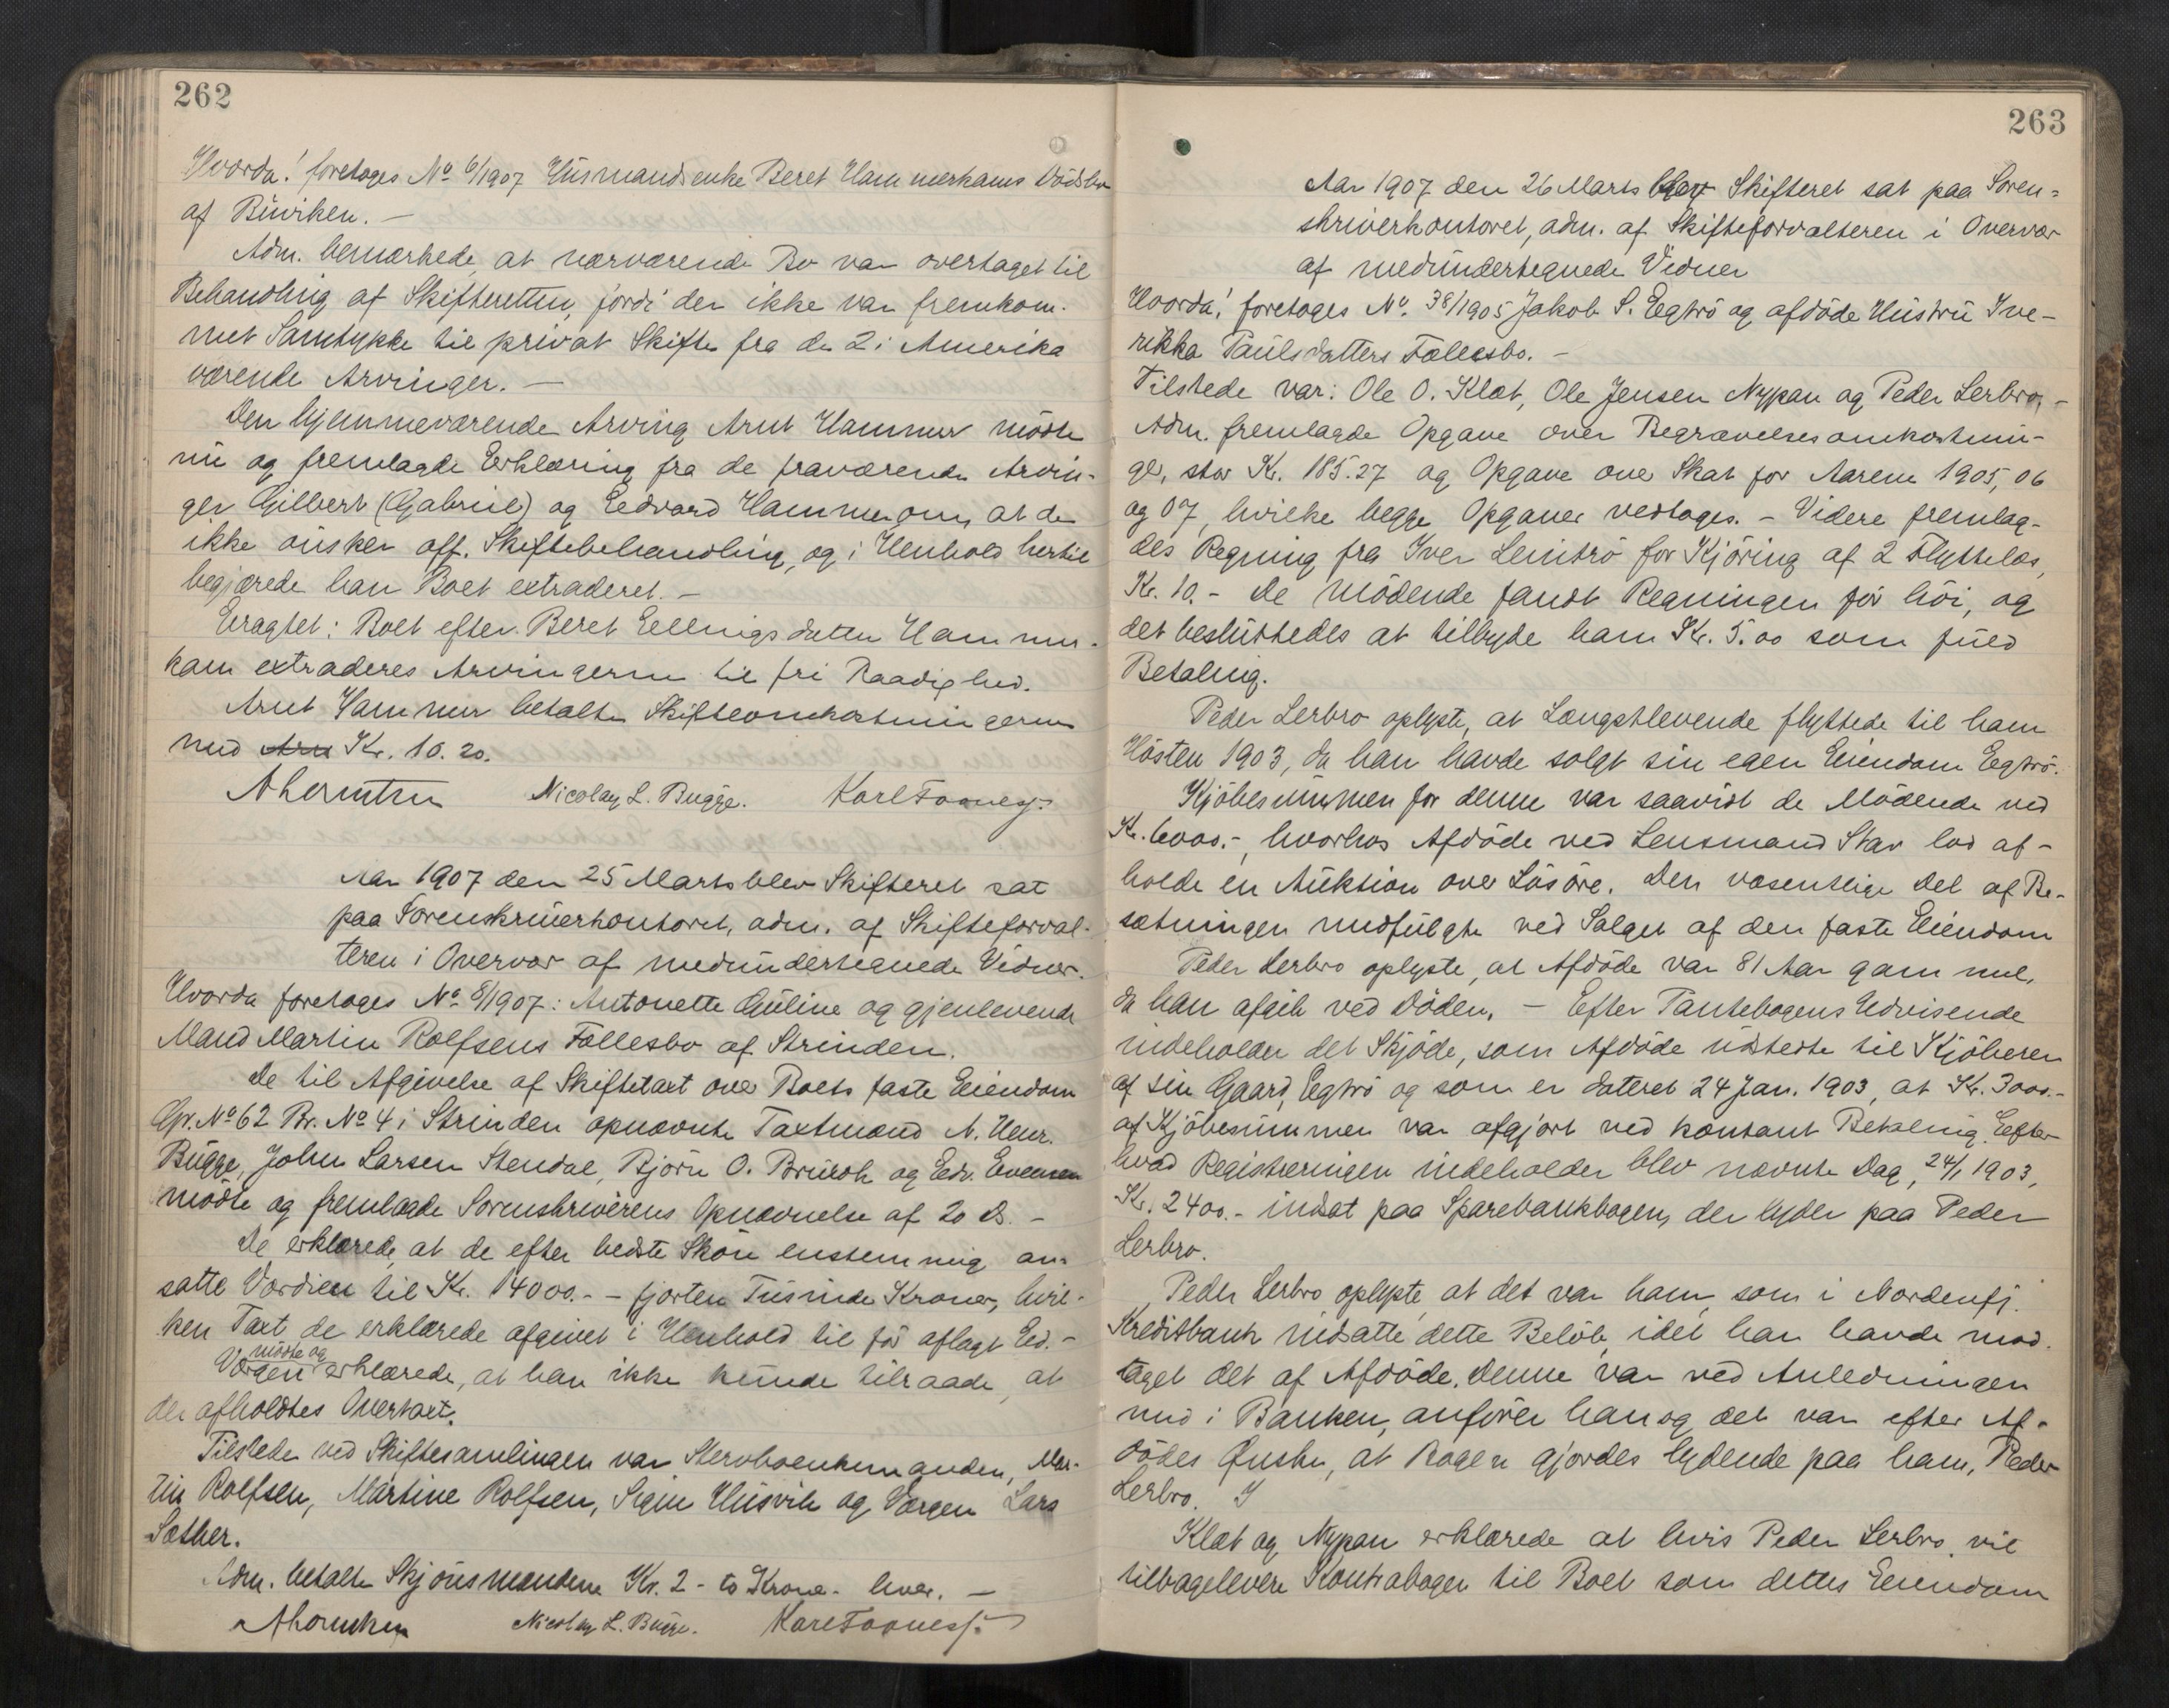 262
Hvorda! foretoges No 6/1907 Husmandsenke Beret Hammerkams Dödsbo
af Buviken. —
Adm. bemærkede, at nærværende Bo var overtaget til
Behandling af Skifteretten, fordi der ikke var fremkom-
met Samtykke til privat Skifte fra de 2 i Amerika
værende Arvinger. —
Den hjemmeværende Arving Arnt Hammer mödte
nu og fremlagde Erklæring fra de fraværende Arvin-
ger Gilbert (Gabriel) og Edvard Hammer om, at de
ikke önsker off. Skiftebehandling, og i Henhold hertil
begjærede han Boet extraderet. —
Eragtet: Boet efter Beret Ellingsdatter Hammer-
kam extraderes Arvingerne til fri Raadighed.
Arnt Hammer betalte Skifteomkostningerne
med Arn Kr. 10.20.
Nicolay L. Bugge. Karl
Aar 1907 den 25 Marts blev Skifteret sat
paa Sorenskriverkontoret, adm. af Skifteforval-
teren i Overvær af medundertegnede Vidner.
Hvorda foretoges No 8/1907: Antonette Guline og gjenlevende
Mand Martin Rolfsens Fællesbo af Strinden.
De til Afgivelse af Skiftetaxt over Boets faste Eiendom
Gr. No 62 Br. No 4 i Strinden opnævnte Taxtmænd N. Henr.
Bugge, John Larsen Stendal, Björn O. Brurok og Edv. Evensen
mödte og fremlagde Sorenskriverens Opnævnelse af 20 ds. —
De erklærede, at de efter bedste Skön enstemmig an-
satte Værdien til Kr. 14000.- – fjorten Tusinde Kroner, hvil-
ken Taxt de erklærede afgivet i Henhold til för aflagt Ed. –
mödte og
Værgen erklærede, at han ikke kunde tilraade, at
der afholdtes Overtaxt.
Tilstede ved Skiftesamlingen var Stervboenkemanden, Mar-
tin Rolfsen, Martine Rolfsen, Husvik og Værgen Lars
Sæther.
Adm. betalte Skjönsmændene Kr. 2 - to Kroner - hver. —
Nicolay L. Bugge. Karl
263
Aar 1907 den 26 Marts blev Skifteret sat paa Soren-
skriverkontoret, adm. af Skifteforvalteren i Overvær
af medundertegnede Vidner
Hvorda! foretoges No. 38/1905 Jakob S. Eggtrö og afdöde Hustru Ive-
rikka Paulsdatters Fællesbo. —
Tilstede var: Ole O. Klæt, Ole Jensen Nypan og Peder Lerbro. –
Adm. fremlagde Opgave over Begravelsesomkostnin-
ger, stor Kr. 185.27 og Opgave over Skat for Aarene 1905, 06
og 07, hvilke begge Opgaver vedtoges. – Videre fremlag-
des Regning fra Iver Lenitrö for Kjöring af 2 Flyttelæs,
Kr. 10.- De mödende fandt Regningen for höi, og
det besluttedes at tilbyde ham Kr. 5.00 som fuld
Betaling.
Peder Lerbro oplyste, at Længstlevende flyttede til ham
Hösten 1903, da han havde solgt sin egen Eiendom Eggtrö.
Kjöbesummen for denne var saavidt de Mödende ved
Kr. 6000.-, hvorhos Afdöde ved Lensmand Stav lod af-
holde en Auktion over Lösöre. Den væsentlige Del af Be-
sætningen medfulgte ved Salget af den faste Eiendom
Peder Lerbro oplyste, at Afdöde var 81 Aar gammel,
da han afgik ved Döden. — Efter Pantebogens Udvisende
indeholder det Skjöde, som Afdöde udstedte til Kjöberen
af sin Gaard, Eggtrö og som er dateret 24 Jan. 1903, at Kr. 3000.-
af Kjöbesummen var afgjort ved kontant Betaling. Efter
hvad Registreringen indeholder blev nævnte Dag, 24/1 1903,
Kr. 2400.- indsat paa Sparebankbogen, der lyder paa Peder
Lerbro.
Peder Lerbro oplyste, at det var ham, som i Nordenfj.
Kreditbank indsatte dette Belöb, idet han havde mod-
taget det af Afdöde. Denne var ved Anledningen
med i Banken, anförer han og det var efter Af-
dödes Önske, at Bogen gjordes lydende paa ham, Peder
Lerbro.
Klæt og Nypan erklærede at hvis Peder Lerbro vil
tilbagelevere Kontrabogen til Boet som dettes Eiendom